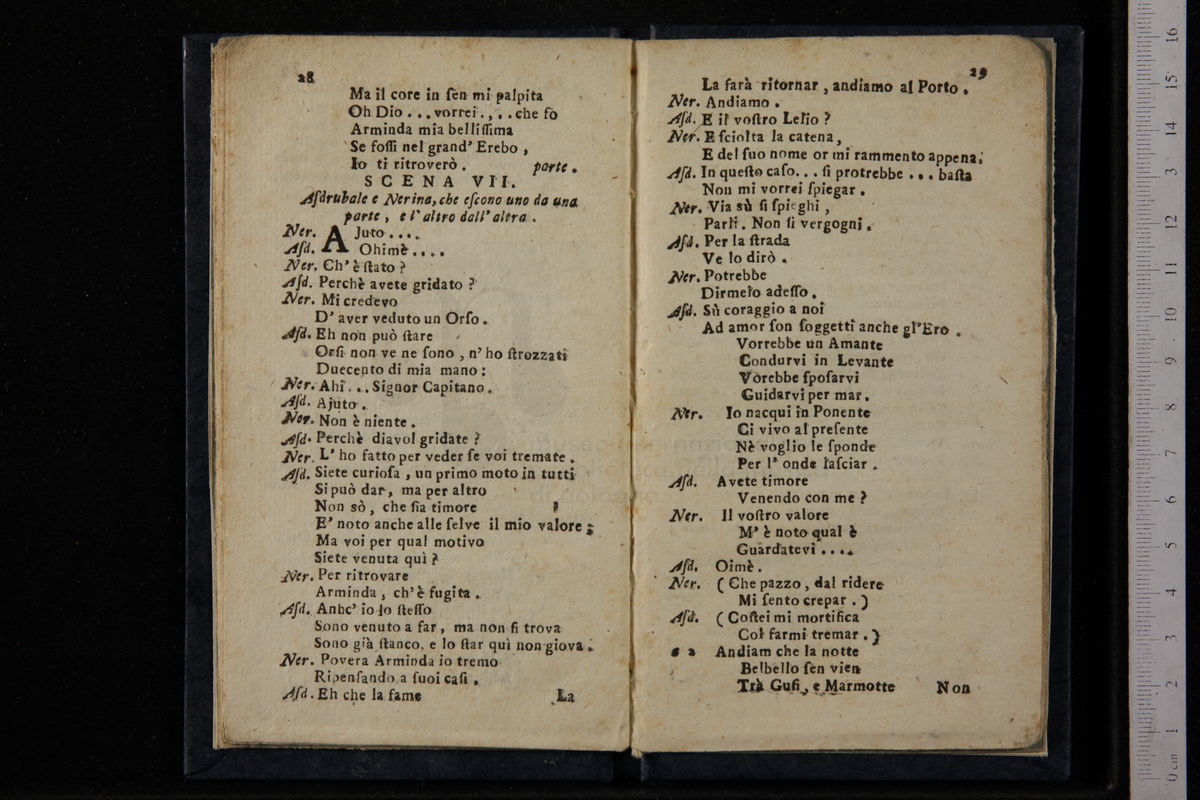 28
Ma il core in ſen mi palpita
Oh Dio . . . vorrei . , . . che fò
Arminda mia belliſſima
Se foſſi nel grand' Erebo ,
Io ti ritroverò . parte .
SCENA VII.
Aſdrubale e Nerina, che eſcono uno da una
parte , e l' altro dall' altra .
Ner. AJuto . . . .
Aſd. Ohimè . . . .
Ner. Ch' è ſtato ?
Aſd. Perchè avete gridato ?
Ner. Mi credevo
D' aver veduto un Orſo .
Aſd. Eh non può ſtare
Orſi non ve ne ſono , n' ho ſtrozzati
Duecento di mia mano :
Ner. Ahi . . . Signor Capitano .
Aſd. Ajuto .
Ner. Non è niente .
Aſd. Perchè diavol gridate ?
Ner. L' ho fatto per veder ſe voi tremate .
Aſd. Siete curioſa , un primo moto in tutti
Si può dar , ma per altro
Non sò , che ſia timore
E' noto anche alle ſelve il mio valore ;
Ma voi per qual motivo
Siete venuta quì ?
Ner. Per ritrovare
Arminda , ch' è fugita .
Aſd. Anhc' io lo ſteſſo
Sono venuto a far , ma non ſi trova
Sono già ſtanco, e lo ſtar quì non giova .
Ner. Povera Arminda io tremo
Ripenſando a ſuoi caſi .
Aſd. Eh che la fame
La
29
La farà ritornar , andiamo al Porto .
Ner. Andiamo .
Aſd. E il voſtro Lelio ?
Ner. E ſciolta la catena ,
E del ſuo nome or mi rammento appena.
Aſd. In queſto caſo . . . ſi protrebbe . . . baſta
Non mi vorrei ſpiegar .
Ner. Via sù ſi ſpieghi ,
Parli . Non ſi vergogni .
Aſd. Per la ſtrada
Ve lo dirò .
Ner. Potrebbe
Dirmelo adeſſo .
Aſd. Sù coraggio a noi
Ad amor ſon ſoggetti anche gl'Ero .
Vorrebbe un Amante
Condurvi in Levante
Vorebbe ſpoſarvi
Guidarvi per mar .
Ner. Io nacqui in Ponente
Ci vivo al preſente
Nè voglio le ſponde
Per l' onde laſciar .
Aſd. Avete timore
Venendo con me ?
Ner. Il voſtro valore
M' è noto qual è
Guardatevi . . . .
Aſd. Oimè .
Ner. ( Che pazzo , dal ridere
Mi ſento crepar . )
Aſd. ( Coſtei mi mortifica
Col farmi tremar . )
a 2 Andiam che la notte
Belbello ſen vien
Trà Gufi , e Marmotte
Non